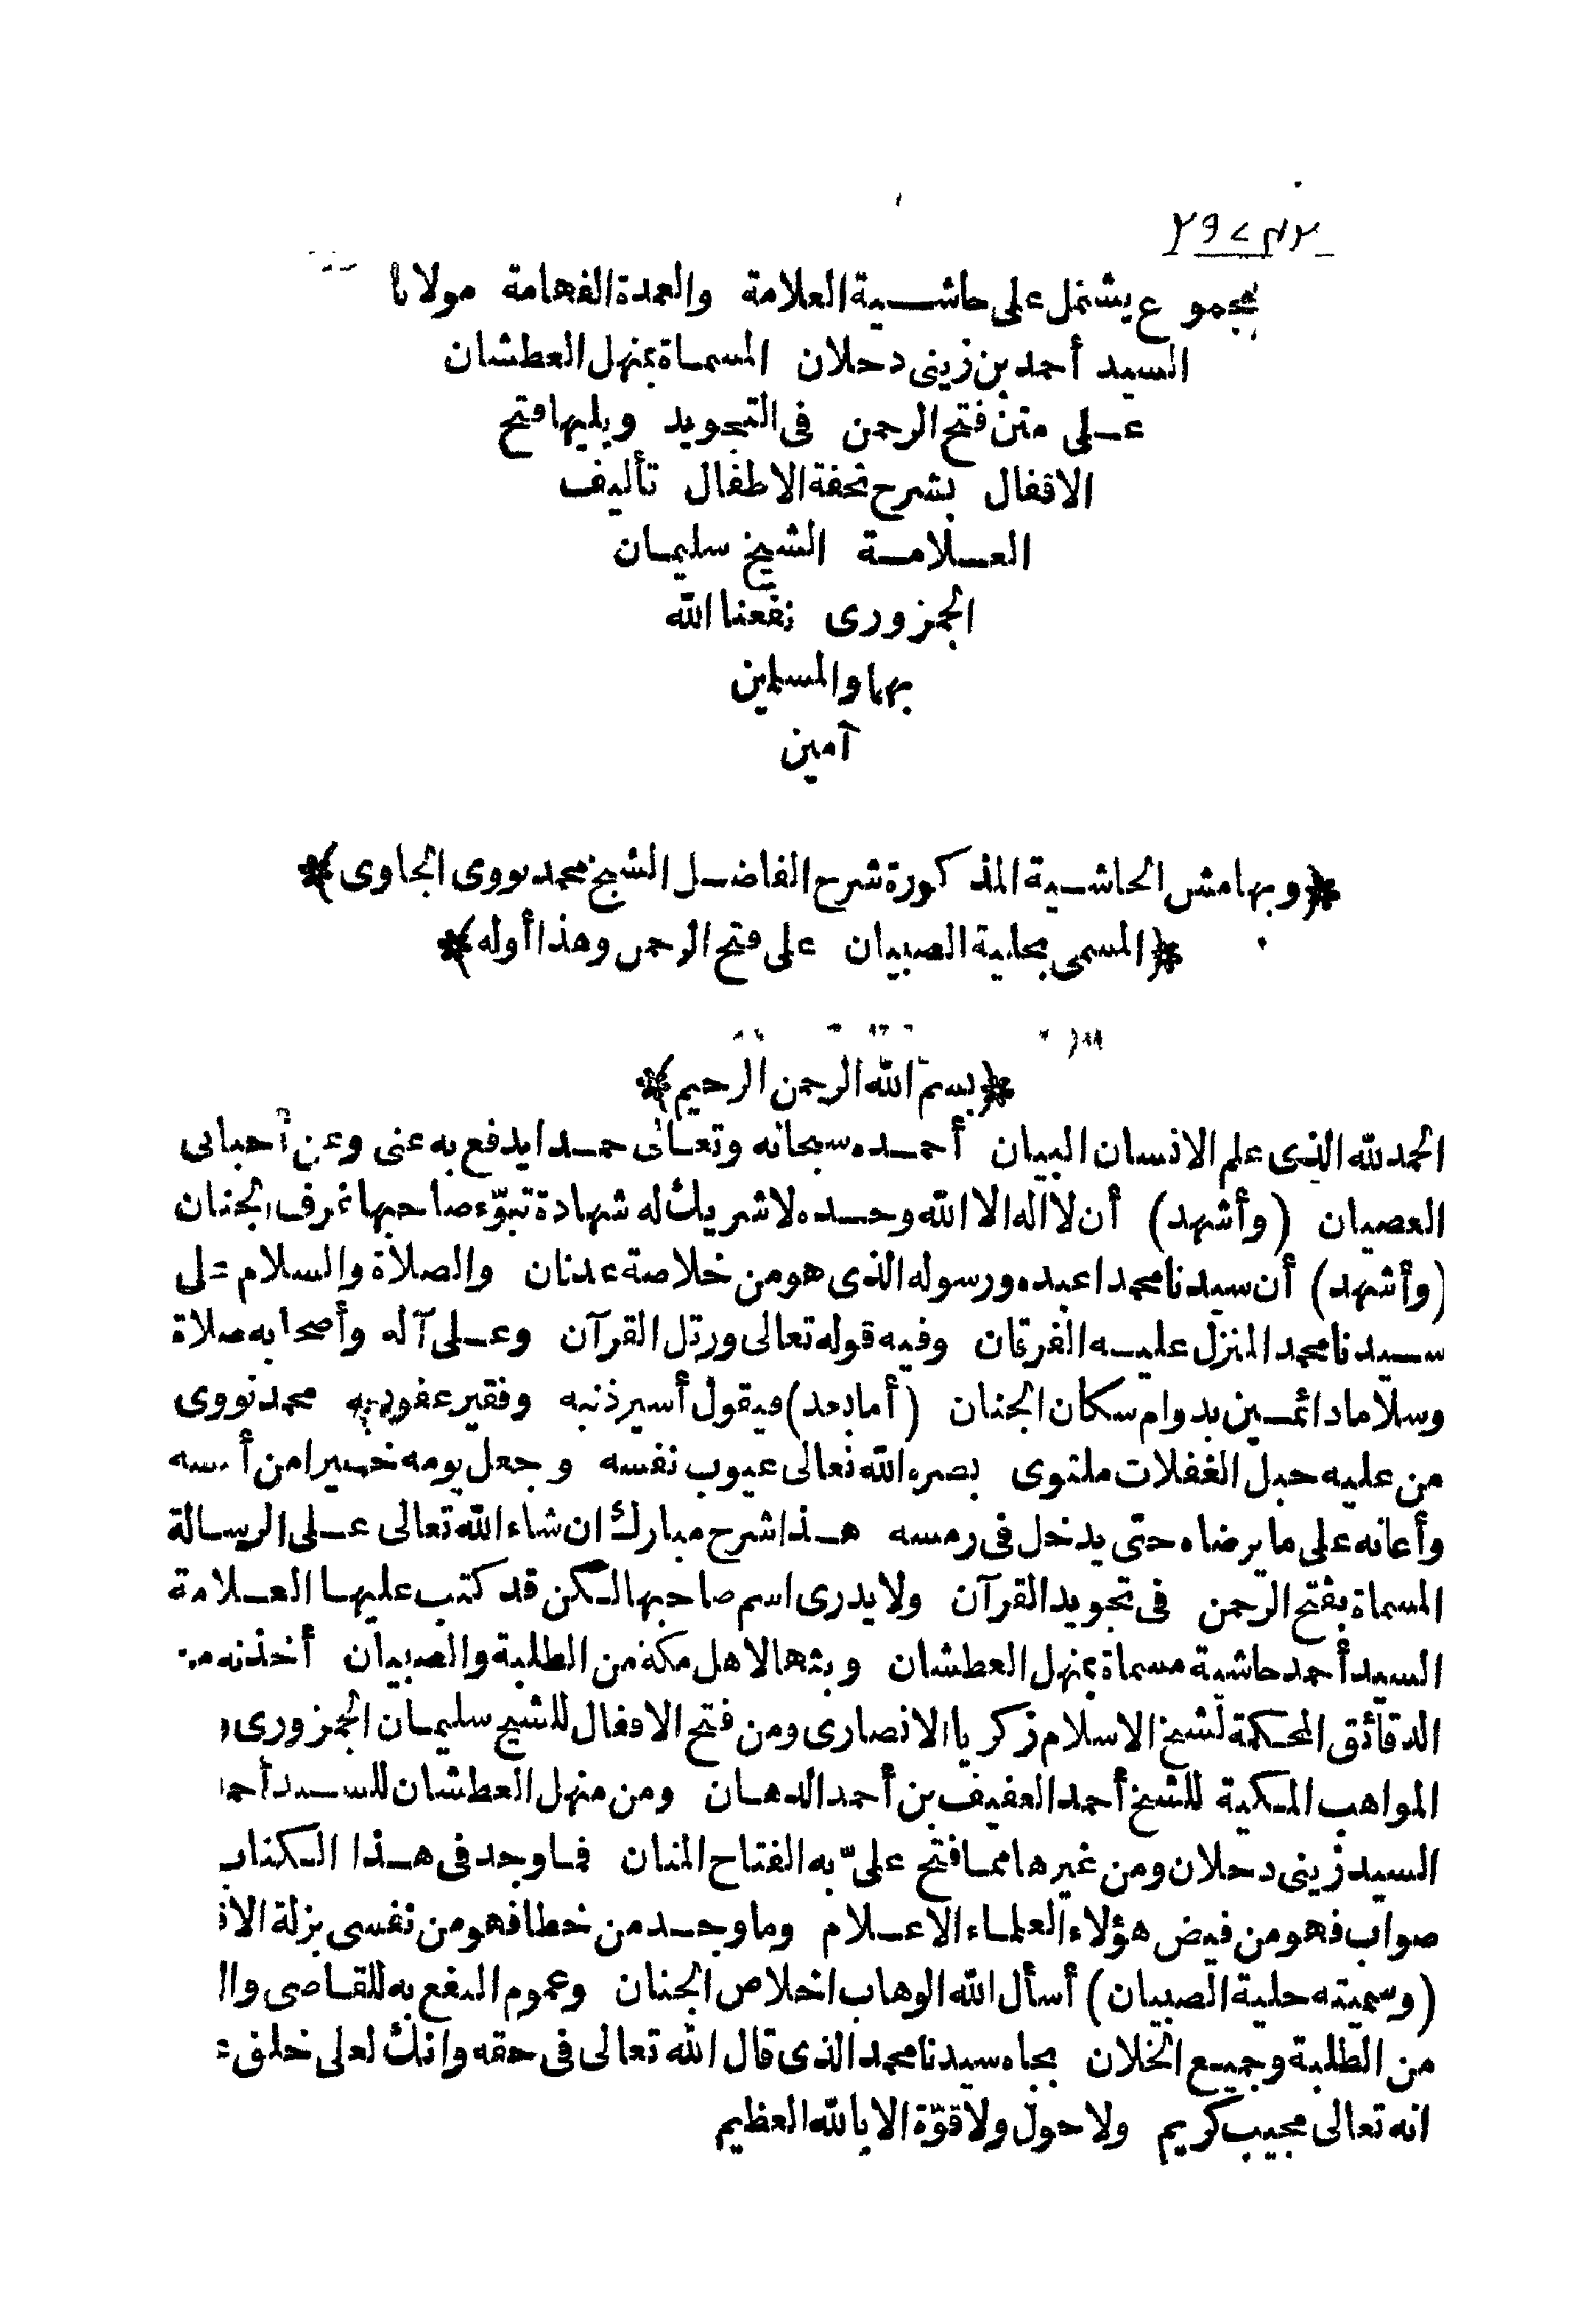 مجموع يشتمل على حاشية العلامة والعمدة الفهامة مولانا
السيد أحمد بن زينى دحلان المسماة بمنهل العطشان
على متن فتح الرحمن فى التجويد ويليها فتح
الاقفال بشرح تحفة الاطفال تأليف
العلامة الشيخ سليمان
الجمزورى نفعنا الله
بهما والمسلمين
آمين
﴿وبهامش الحاشية المذكورة شرح الفاضل الشيخ محمد نووى الجاوى﴾
﴿المسمى بحلية الصبيان على فتح الرحمن وهذا أوله﴾
﴿بسم الله الرحمن الرحيم﴾
الحمد لله الذى علم الانسان البيان أحمده سبحانه وتعالى حمدا يدفع به عنى وعن أحبابى
العصيان (وأشهد) أن لااله الا الله وحده لاشريك له شهادة تبوّء صاحبها غرف الجنان
(وأشهد) أن سيدنا محمدا عبده ورسوله الذى هو من خلاصة عدنان والصلاة والسلام على
سيدنا محمد المنزل عليه الفرقان وفيه قوله تعالى ورتل القرآن وعلى آله وأصحابه صلاة
وسلاما دائمين بدوام سكان الجنان (أما بعد) فيقول أسير ذنبه وفقير عفو ربه محمد نووى
من عليه حبل الغفلات ملتوى بصره الله تعالى عيوب نفسه وجعل يومه خيرا من أمسه
وأعانه على ما يرضاه حتى يدخل فى رمسه هذا شرح مبارك ان شاء الله تعالى على الرسالة
المسماة بفتح الرحمن فى تجويد القرآن ولا يدرى اسم صاحبها لكن قد كتب عليها العلامة
السيد أحمد حاشية مسماة بمنهل العطشان وبثها لاهل مكة من الطلبة والصبيان أخذته من
الدقائق المحكمة لشيخ الاسلام زكريا الانصارى ومن فتح الاقفال للشيخ سليمان الجمزورى و
المواهب المكية للشيخ أحمد العفيف بن أحمد الدهان ومن منهل العطشان للسيد أحمد
السيد زينى دحلان ومن غيرها مما فتح علىّ به الفتاح المنان فما وجد فى هذا الكتاب
صواب فهو من فيض هؤلاء العلماء الاعلام وما وجد من خطا فهو من نفسى بزلة الا
(وسميته حلية الصبيان) أسأل الله الوهاب اخلاص الجنان وعموم النفع به للقاصى وال
من الطلبة وجميع الخلان بجاه سيدنا محمد الذى قال الله تعالى فى حقه وانك لعلى خلق
انه تعالى مجيب كريم ولا حول ولا قوّة الا بالله العظيم